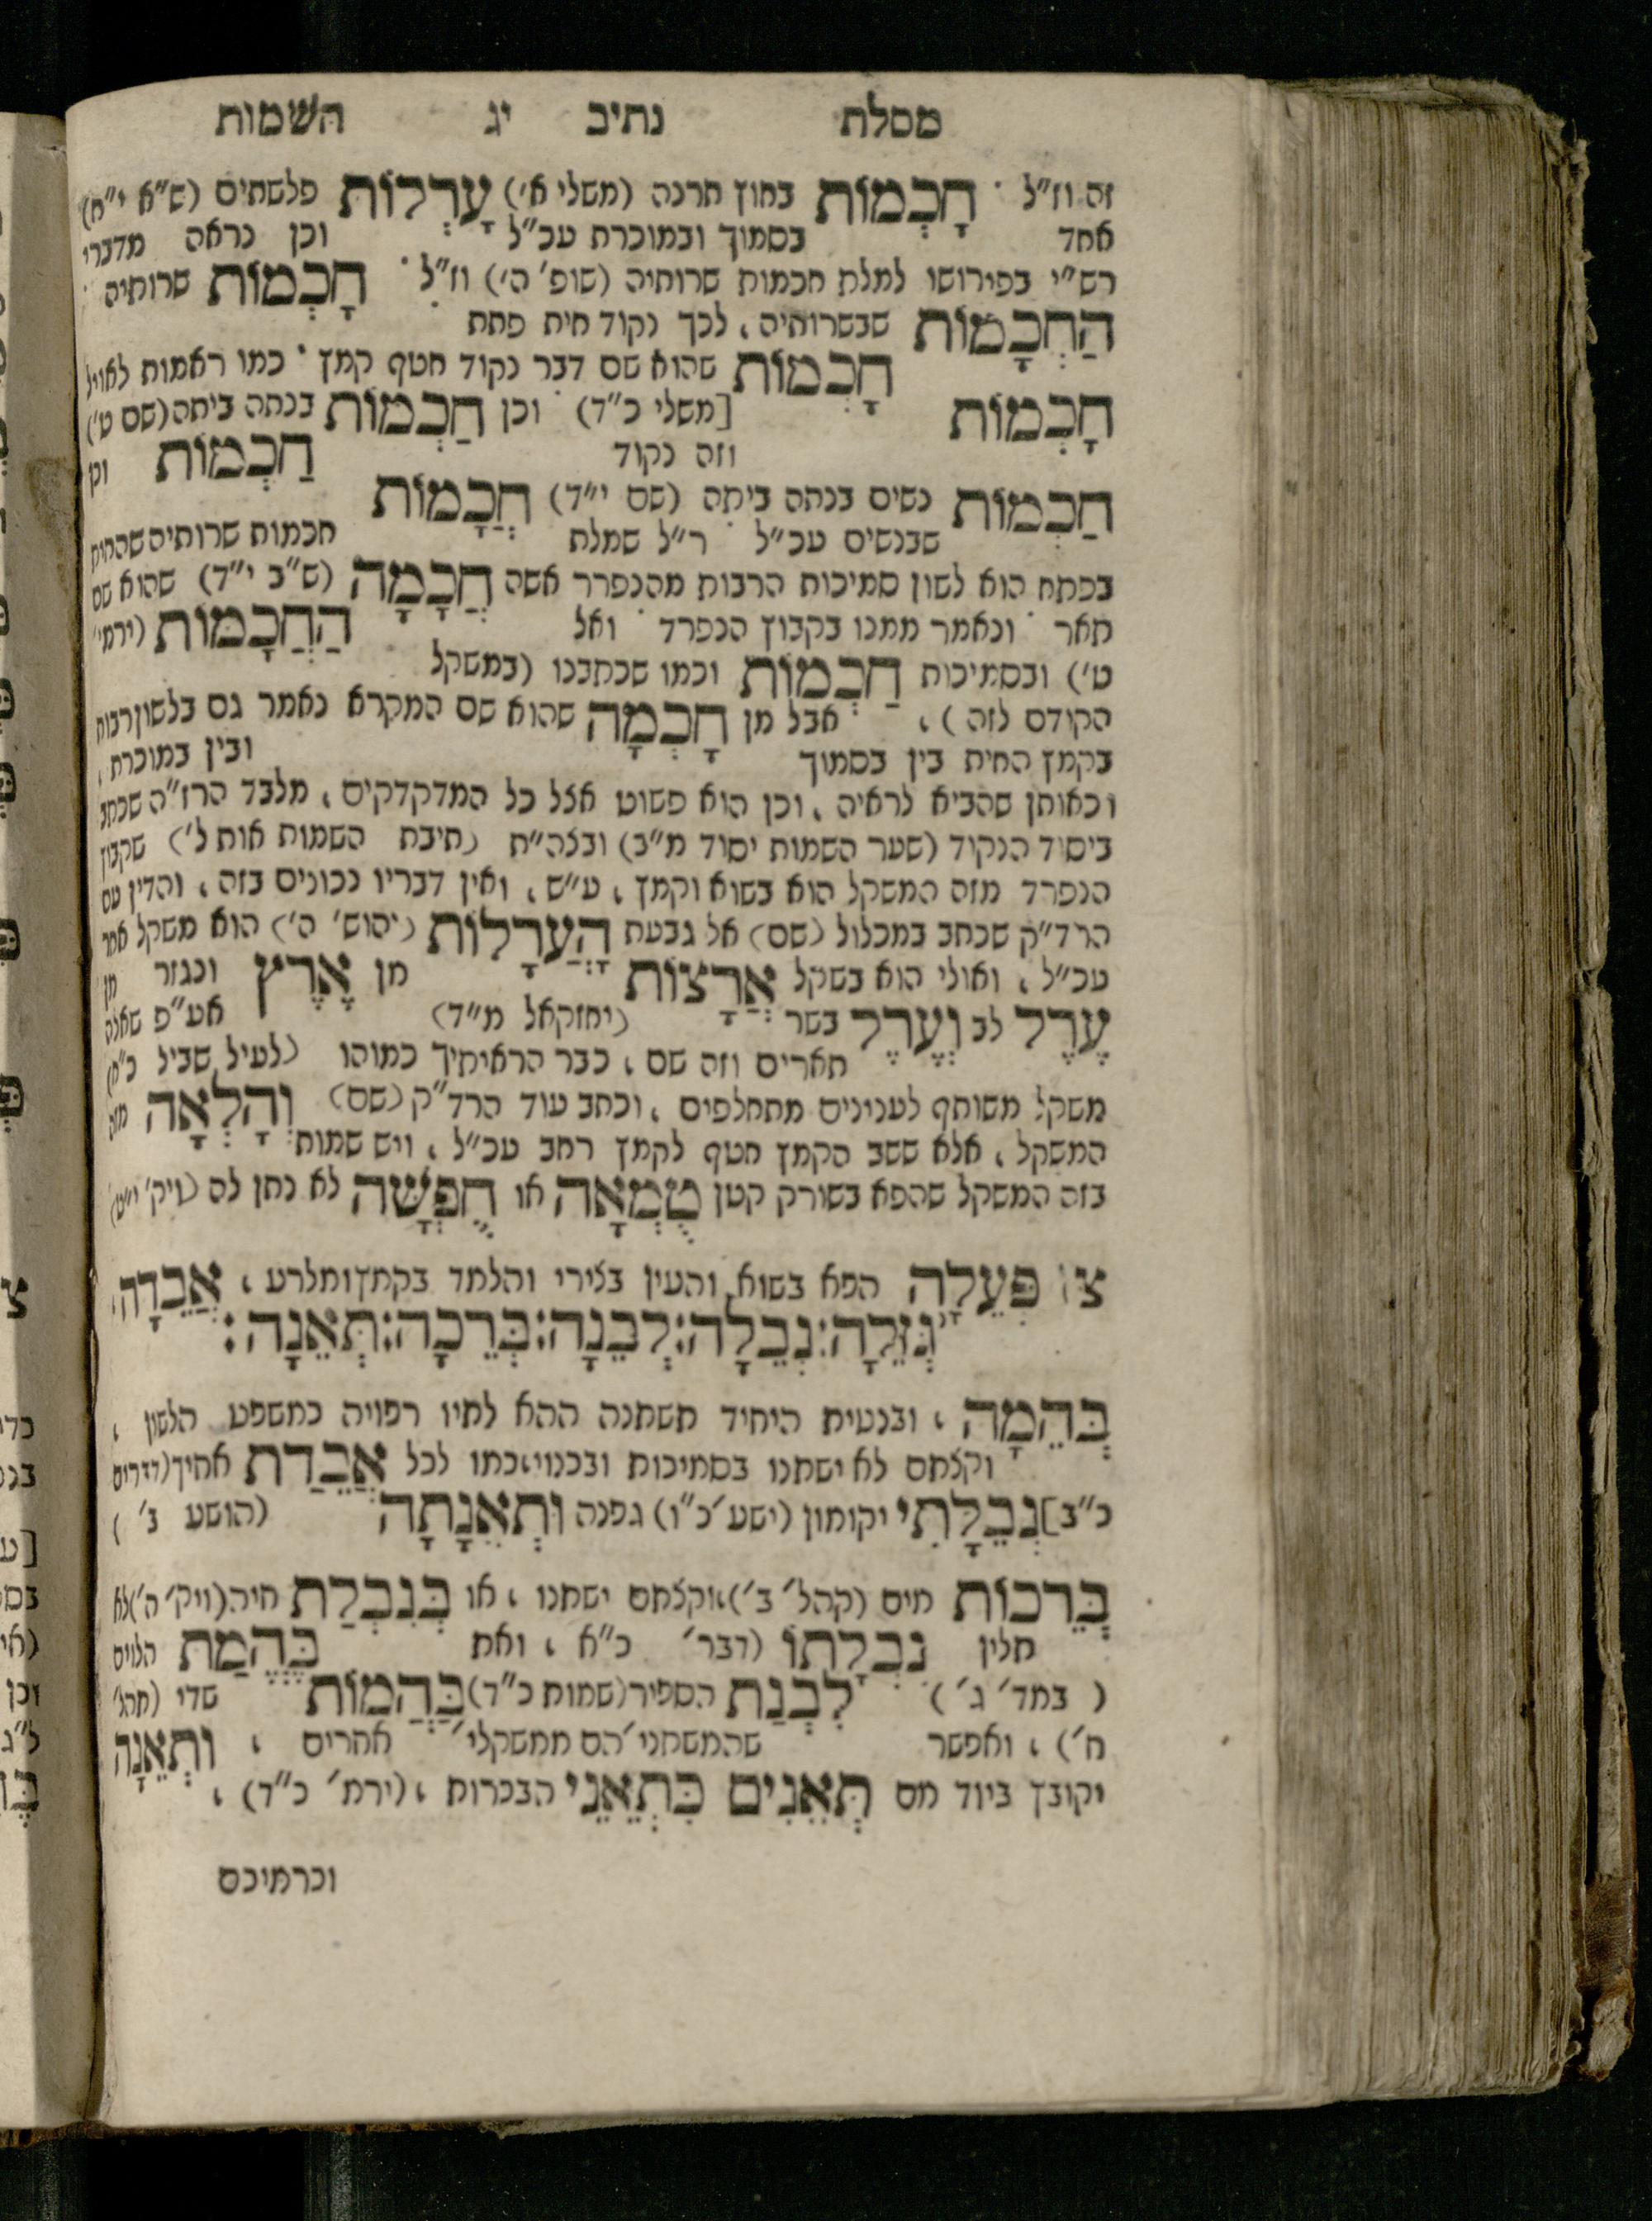 מסלת נתיב יג השמות
זה וז״ל ׳ חָכְמוֹת בחוץ תרנה (משלי א׳) עָרְלוֹת פלשתים (ש״א י״ח)
אחד בסמוך ובמוכרת עכ״ל וכן נראה מדברי
רש״י בפירושו למלת חכמות שרותיה (שופ׳ ה׳) וז״ל ׳ חָכְמוֹת שרותיה
הַחְכָמוֹת שבשרותיה, לכך נקוד חית פתח
חָכְמוֹת שהוא שם דבר נקוד חטף קמץ ׳ כמו ראמות לאויל
חָכְמוֹת [משלי כ״ד) ׳ וכן חַכְמוֹת בנתה ביתה (שם ט׳)
וזה נקוד חַכְמוֹת וכן
חַכְמוֹת נשים בנתה ביתה (שם י״ד) חֲכָמוֹת
שבנשים עכ״ל ׳ ר״ל שמלת חכמות שרותיה שהחית
בפתח הוא לשון סמיכות הרבות מהנפרד אשה חֲכָמָה (ש״ב י״ד) שהוא שם
תאר ׳ ונאמר ממנו בקבוץ הנפרד ׳ ואל הַחֲכָמוֹת (ירמי׳
ט׳) ובסמיכות חַכְמוֹת וכמו שכתבנו (במשקל
הקודם לזה), אבל מן חָכְמָה שהוא שם המקרא נאמר גם בלשון רבות
בקמץ החית בין בסמוך ובין במוכרת,
וכאותן שהביא לראיה, וכן הוא פשוט אצל כל המדקדקים, מלבד הרז״ה שכתב
ביסוד הנקוד (שער השמות יסוד מ״ב) ובצה״ת (תיבת השמות אות ל׳) שקבוץ
הנפרד מזה המשקל הוא בשוא וקמץ, ע״ש, ואין דבריו נכונים בזה, והדין עם
הרד״ק שכתב במכלול (שם) אל גבעת הָעֲרָלוֹת (יהוש׳ ה׳) הוא משקל אחר
עכ״ל, ואולי הוא בשקל אֲרָצוֹת מן אֶרֶץ ונגזר מן
עֶרֶל לב וְעֶרֶל בשר (יחזקאל מ״ד) אע״פ שאלה
תארים וזה שם, כבר הראיתיך כמוהו (לעיל שביל כ״ח)
משקל משותף לענינים מתחלפים, וכתב עוד הרד״ק (שם) וְהָלְאָה מזה
המשקל, אלא ששב הקמץ חטף לקמץ רחב עכ״ל, ויש שמות
בזה המשקל שהפא בשורק קטן טֻמְאָה או חֻפְשָׁה לא נתן לה (ויק׳ י״ט)
צו פְּעֵלָה הפא בשוא והעין בצירי והלמד בקמץ ומלרע, אֲבֵדָה׃
גְּזֵלָה׃ נְבֵלָה׃ לְבֵנָה׃ בְּרֵכָה׃ תְּאֵנָה׃
בְּהֵמָה, ובנטית היחיד תשתנה ההא לתיו רפויה כמשפט הלשון,
וקצתם לא ישתנו בסמיכות ובכנוי, כמו לכל אֲבֵדַת אחיך (דברים
כ״ב] נְבֵלָתִי יקומון (ישע׳ כ״ו) גפנה וּתְאֵנָתָהּ (הושע ב׳)
בְּרֵכוֹת מים (קהל׳ ב׳), וקצתם ישתנו, או בְּנִבְלַת חיה (ויק׳ ה׳) לא
תלין נִבְלָתוֹ (דבר׳ כ״א, ואת בֶּהֱמַת הלוים
(במד׳ ג׳) לִבְנַת הספיר (שמות כ״ד) בַּהֲמוֹת שדי (תהל׳
ח׳), ואפשר שהמשתני׳ הם ממשקלי׳ אחרים, וּתְאֵנָה
יקובץ ביוד מם תְּאֵנִים כִּתְאֵנֵי הבכרות, (ירמ׳ כ״ד),
וכרמיכם